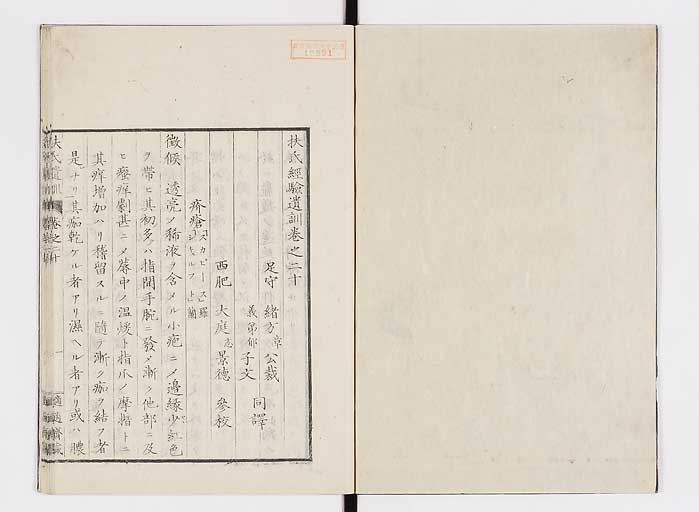 扶氏經驗遺訓巻之二十
足守 緒方章公裁
義弟郁子文 同譯
西肥 大庭忞景德 參校
疥瘡 スカビース羅 蘭
徴候 透亮ノ稀液ヲ含メル小疱ニ〆邊縁少シク紅色
ヲ帶ヒ其初多ハ指間手腕ニ發〆漸ク他部ニ及
ヒ瘙痒劇甚ニ〆蓐中ノ温煖ト指爪ノ摩擦トニ
其痒增加ハリ稽留スルニ隨テ漸ク痂ヲ結フ者
是ナリ其痂乾ケル者アリ濕ヘル者アリ或ハ膿
扶氏遺訓 巻之二十 一 適適齋藏